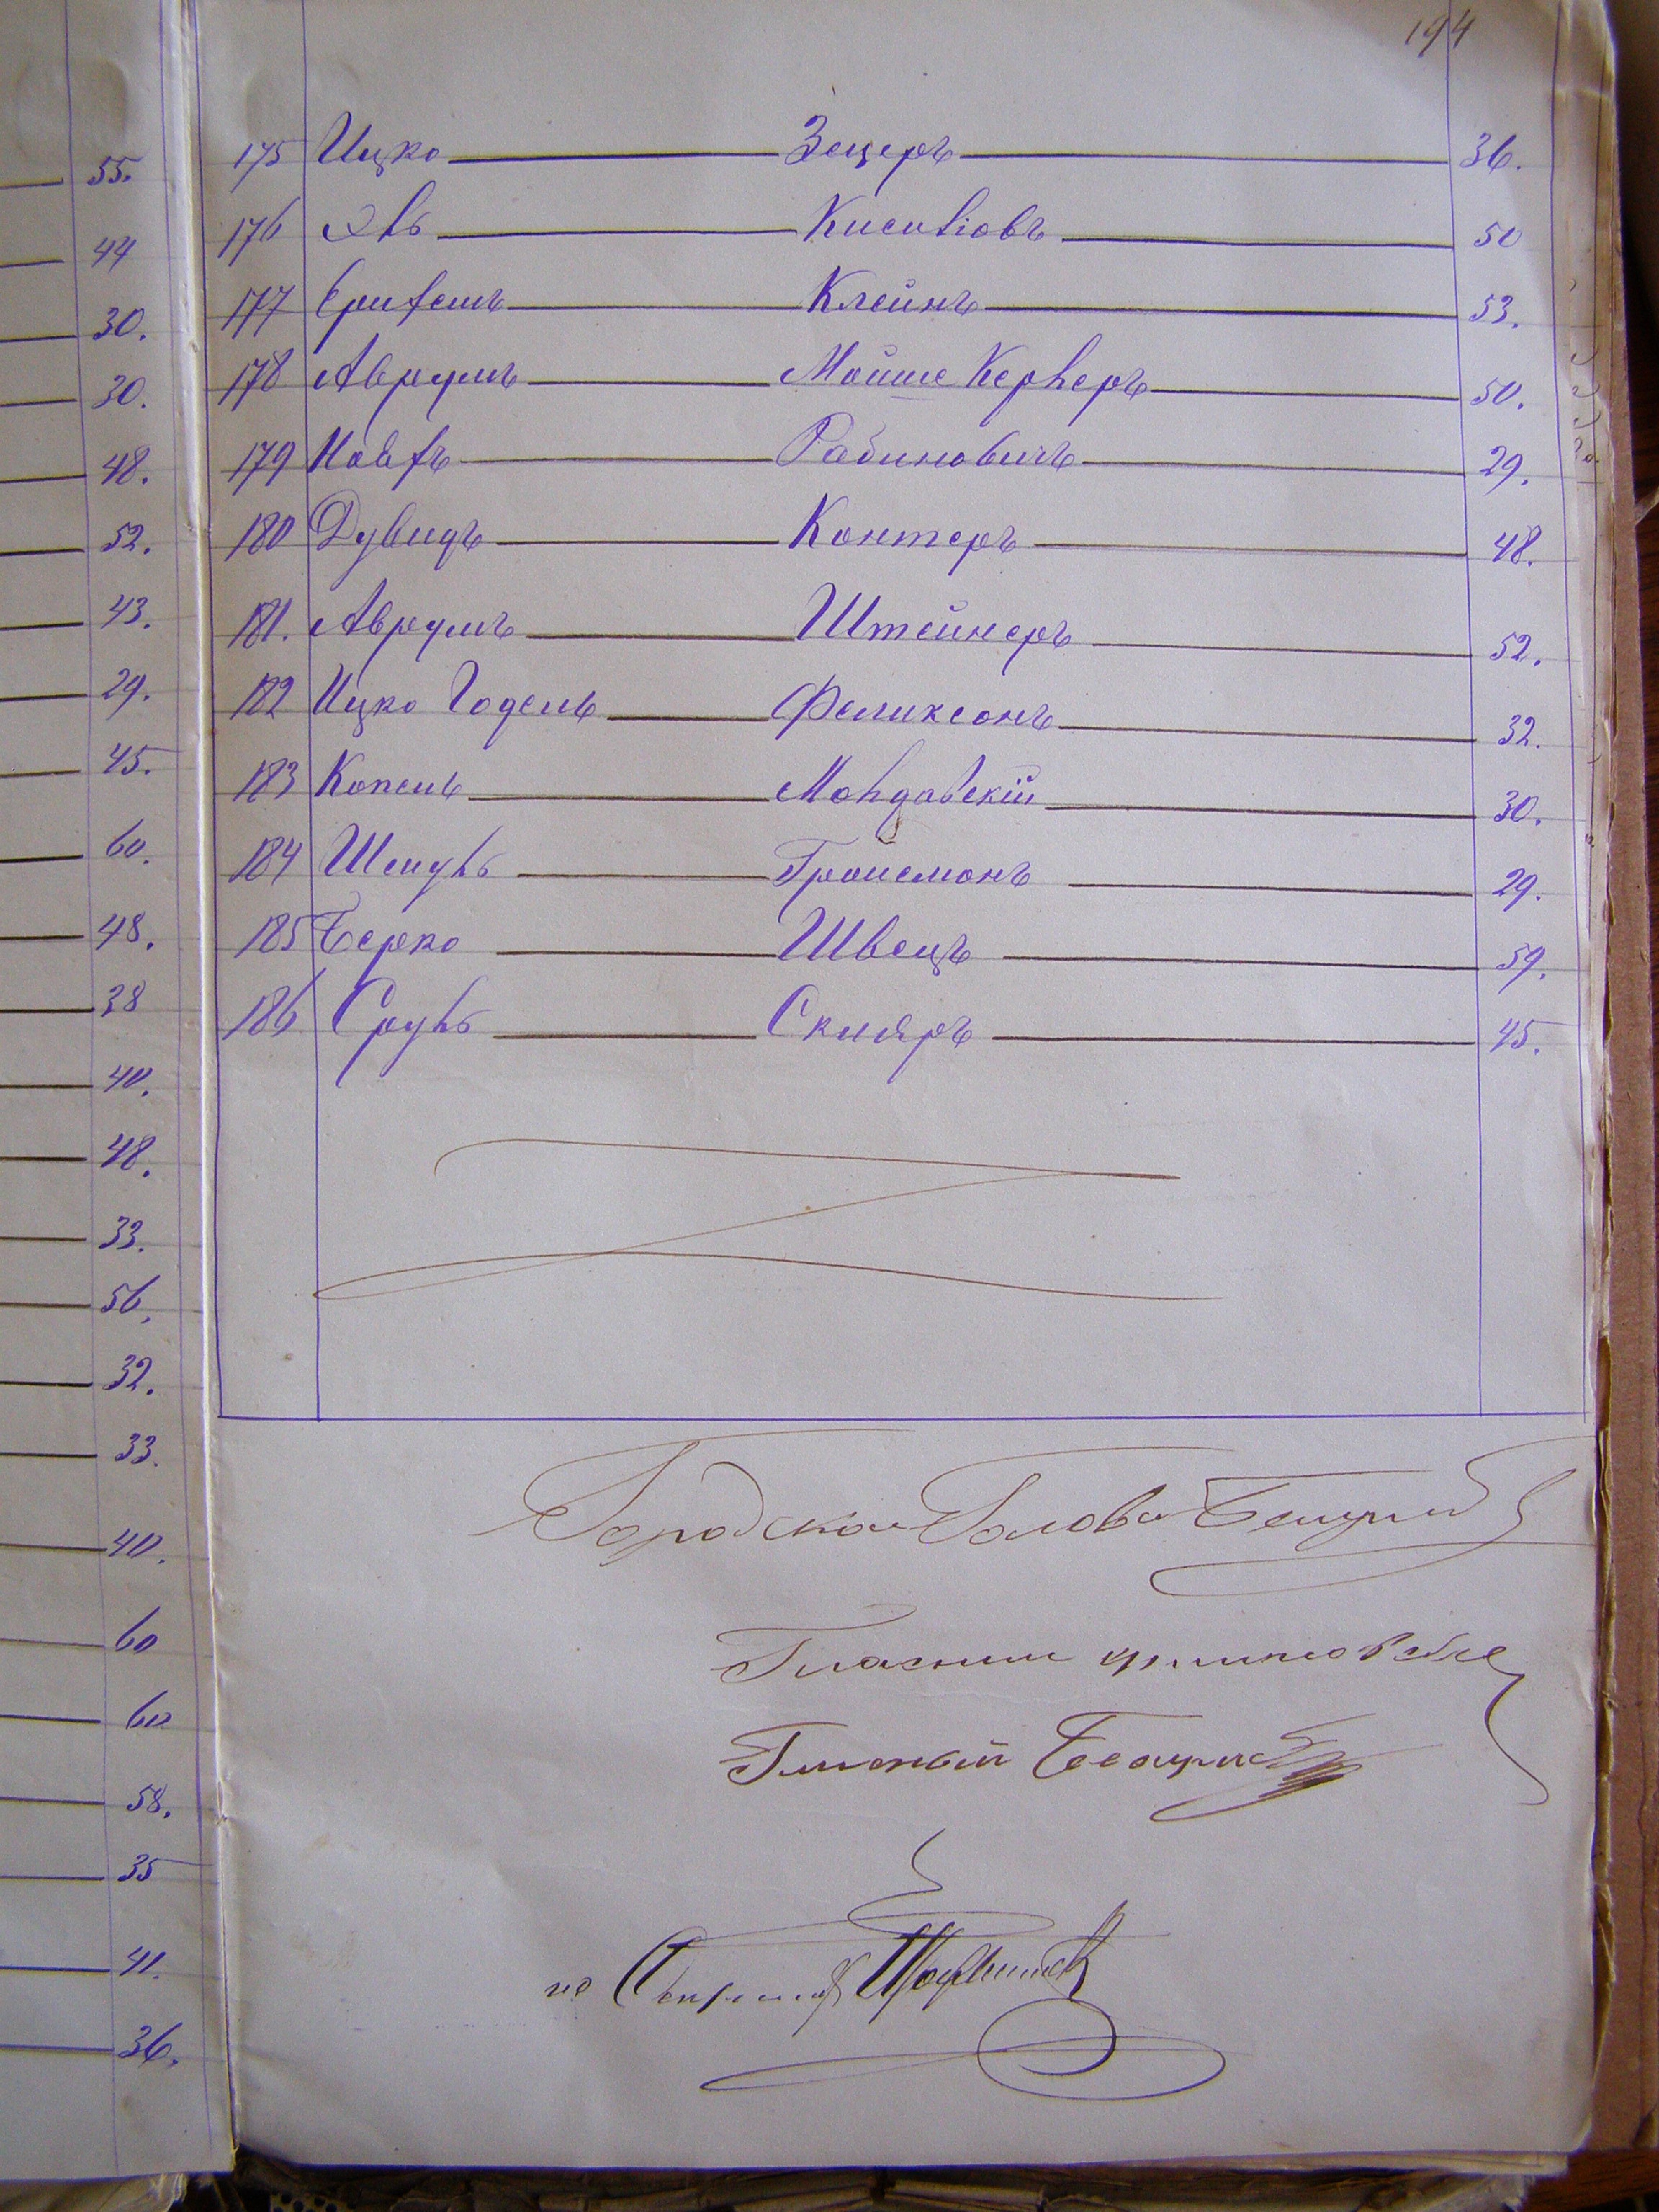 194
55.
44
30.
30.
48.
52.
43.
29.
45.
60.
48.
38
40.
48.
33.
56.
32.
33.
40.
60
60
58.
35
41.
36.
175 Ицко Зецеръ 36.
176 50
177 Клейнъ 53.
178 Аврумъ Мойше Керnеръ 50.
179 Рабиновичъ 29.
180 Дувидъ Контеръ 48.
181. Аврумъ Штейнеръ 52.
182 Ицко Годель Феликсонъ 32.
183 Копель Молдавскій 30.
184 Шмуль Гройсманъ 29.
185 Берко Швецъ 59.
186 Сруль Скляръ 45.
Городской Голова
Гласный
Гласный